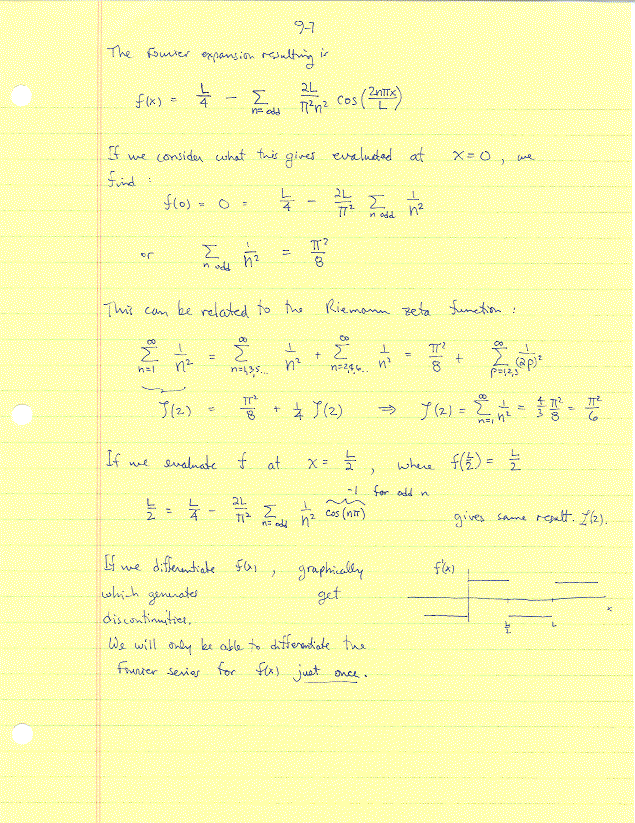 9-7
The Fourier expansion resulting is
f(x) = L/4 - Σ_{n=odd} 2L/(π²n²) cos(2nπx/L)
If we consider what this gives evaluated at x=0, we
find :
f(0) = 0 = L/4 - 2L/π² Σ_{n odd} 1/n²
or Σ_{n odd} 1/n² = π²/8
This can be related to the Riemann zeta function :
Σ_{n=1}^{∞} 1/n² = Σ_{n=1,3,5...}^{∞} 1/n² + Σ_{n=2,4,6...}^{∞} 1/n² = π²/8 + Σ_{p=1,2,3}^{∞} 1/(2p)²
ζ(2) = π²/8 + 1/4 ζ(2) ⇒ ζ(2) = Σ_{n=1}^{∞} 1/n² = 4/3 π²/8 = π²/6
If we evaluate f at x = L/2 , where f(L/2) = L/2
-1 for odd n
L/2 = L/4 - 2L/π² Σ_{n=odd} 1/n² cos(nπ) gives same result. ζ(2).
If we differentiate f(x) , graphically f'(x)
which generates get
discontinuities.
x
L/2 L
We will only be able to differentiate the
Fourier series for f(x) just once.